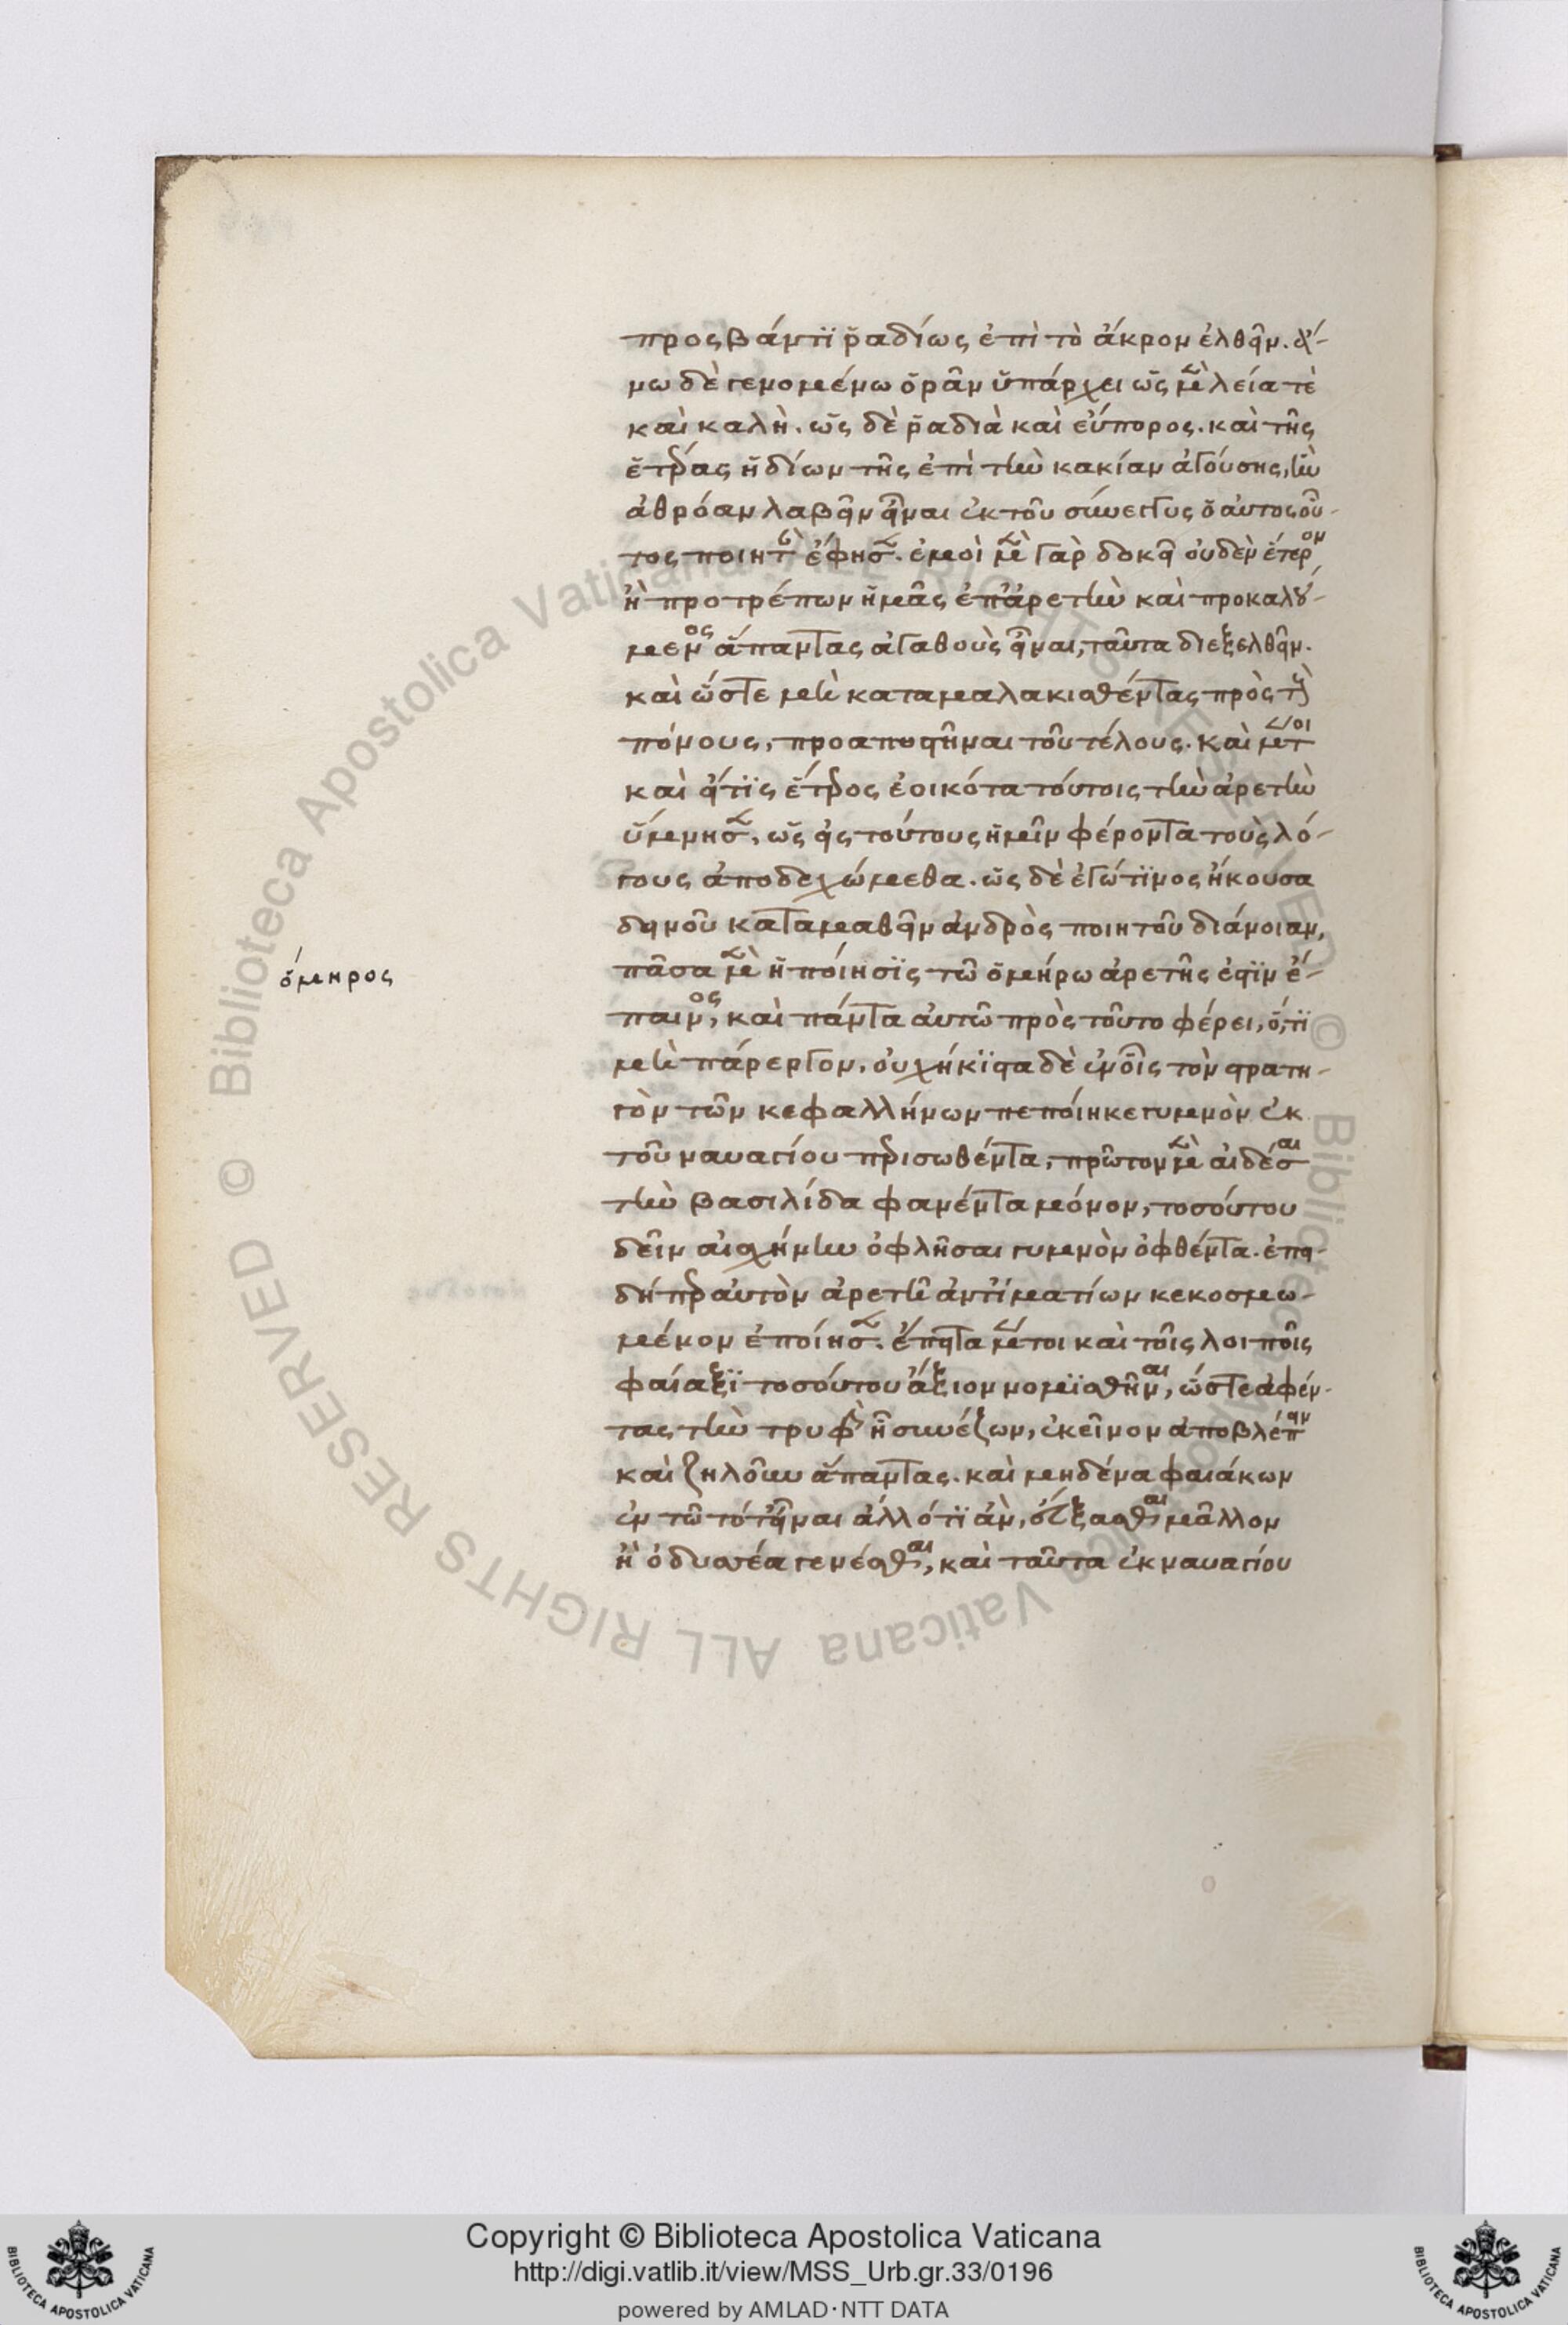 προσβάντι ῥαδίως ἐπὶ τὸ ἄκρον ἐλθεῖν. ἄ-
νω δὲ γενομένω ὁρᾶν ὑπάρχει ὡς μὲν λεία τὲ
καὶ καλὴ. ὡς δὲ ῥαδιὰ καὶ εὔπορος. καὶ τῆς
ἑτέρας ἡδίων τῆς ἐπὶ τὴν κακίαν ἀγούσης, ἣν
ἀθρόαν λαβεῖν εἶναι ἐκ τοῦ σύνεγγυς ὁ αὐτὸς οὗ-
τος ποιητὴς ἔφησεν. ἐμοὶ μὲν γὰρ δοκεῖ οὐδὲν ἕτερον
ἢ προτρέπων ἡμᾶς ἐπ' ἀρετὴν καὶ προκαλού-
μενος ἅπαντας ἀγαθοὺς εἶναι, ταῦτα διεξελθεῖν.
καὶ ὥστε μὴ καταμαλακισθέντας πρὸς τοὺς
πόνους, προαποστῆναι τοῦ τέλους. καὶ μέντοι
καὶ εἴ τις ἕτερος ἐοικότα τούτοις τὴν ἀρετὴν
ὕμνησεν, ὡς εἰς τούτους ἡμῖν φέροντα τοὺς λό-
γους ἀποδεχώμεθα. ὡς δὲ ἐγώ τινος ἤκουσα
δεινοῦ καταμαθεῖν ἀνδρὸς ποιητοῦ διάνοιαν,
πᾶσα μὲν ἡ ποίησις τῶ ὁμήρω ἀρετῆς ἐστὶν ἔ-
παινος, καὶ πάντα αὐτῶ πρὸς τοῦτο φέρει, ὅ,τι
μὴ πάρεργον. οὐχήκιστα δὲ ἐν οἷς τὸν στρατη-
γὸν τῶν κεφαλλήνων πεποίηκε γυμνὸν ἐκ
τοῦ ναυαγίου περισωθέντα, πρῶτον μὲν αἰδέσαι
τὴν βασιλίδα φανέντα μόνον, τοσούτου
δεῖν αἰσχύνην ὀφλῆσαι γυμνὸν ὀφθέντα. ἐπει-
δήπερ αὐτὸν ἀρετῆ ἀντὶ ἱματίων κεκοσμω-
μένον ἐποίησεν. ἔπειτα μέντοι καὶ τοῖς λοιποῖς
φαίαξι τοσούτου ἄξιον νομισθῆναι, ὥστε ἀφέν-
τας τὴν τρυφὴν ἧ συνέζων, ἐκεῖνον ἀποβλέπειν
καὶ ζηλοῦν ἅπαντας. καὶ μηδένα φαιάκων
ἐν τῶ τότε εἶναι ἄλλό τι ἂν, εὔξασθαι μᾶλλον
ἢ ὀδυσσέα γενέσθαι, καὶ ταῦτα ἐκ ναυαγίου
ὅμηρος
© Biblioteca Apostolica Vaticana ALL RIGHTS RESERVED © Biblioteca Apostolica Vaticana ALL RIGHTS RESERVED
Copyright © Biblioteca Apostolica Vaticana
http://digi.vatlib.it/view/MSS_Urb.gr.33/0196
powered by AMLAD·NTT DATA
BIBLIOTECA APOSTOLICA VATICANA
BIBLIOTECA APOSTOLICA VATICANA